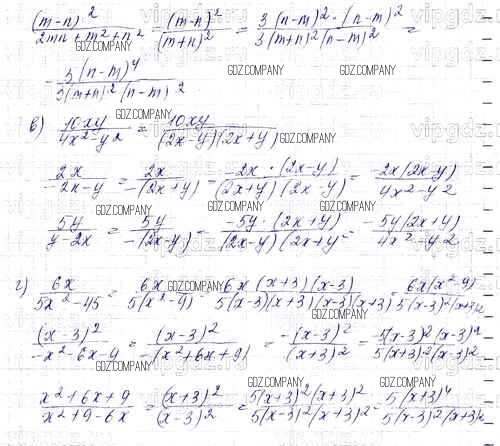 (m-n)² / 2mn+m²+n² = (m-n)² / (m+n)² = 3(n-m)²·(n-m)² / 3(m+n)²(n-m)² =
= 3(n-m)⁴ / 3(m+n)²(n-m)²
в) 10xy / 4x²-y² = 10xy / (2x-y)(2x+y)
2x / -2x-y = 2x / -(2x+y) = -2x·(2x-y) / (2x+y)(2x-y) = -2x(2x-y) / 4x²-y²
5y / y-2x = 5y / -(2x-y) = -5y·(2x+y) / (2x-y)(2x+y) = -5y(2x+y) / 4x²-y²
г) 6x / 5x²-45 = 6x / 5(x²-9) = 6x(x+3)(x-3) / 5(x-3)(x+3)(x-3)(x+3) = 6x(x²-9) / 5(x-3)²(x+3)²
(x-3)² / -x²-6x-9 = (x-3)² / -(x²+6x+9) = -(x-3)² / (x+3)² = -5(x-3)²(x-3)² / 5(x+3)²(x-3)²
x²+6x+9 / x²+9-6x = (x+3)² / (x-3)² = 5(x+3)²(x+3)² / 5(x-3)²(x+3)² = 5(x+3)⁴ / 5(x-3)²(x+3)²
GDZ.COMPANY
vipgdz.ru